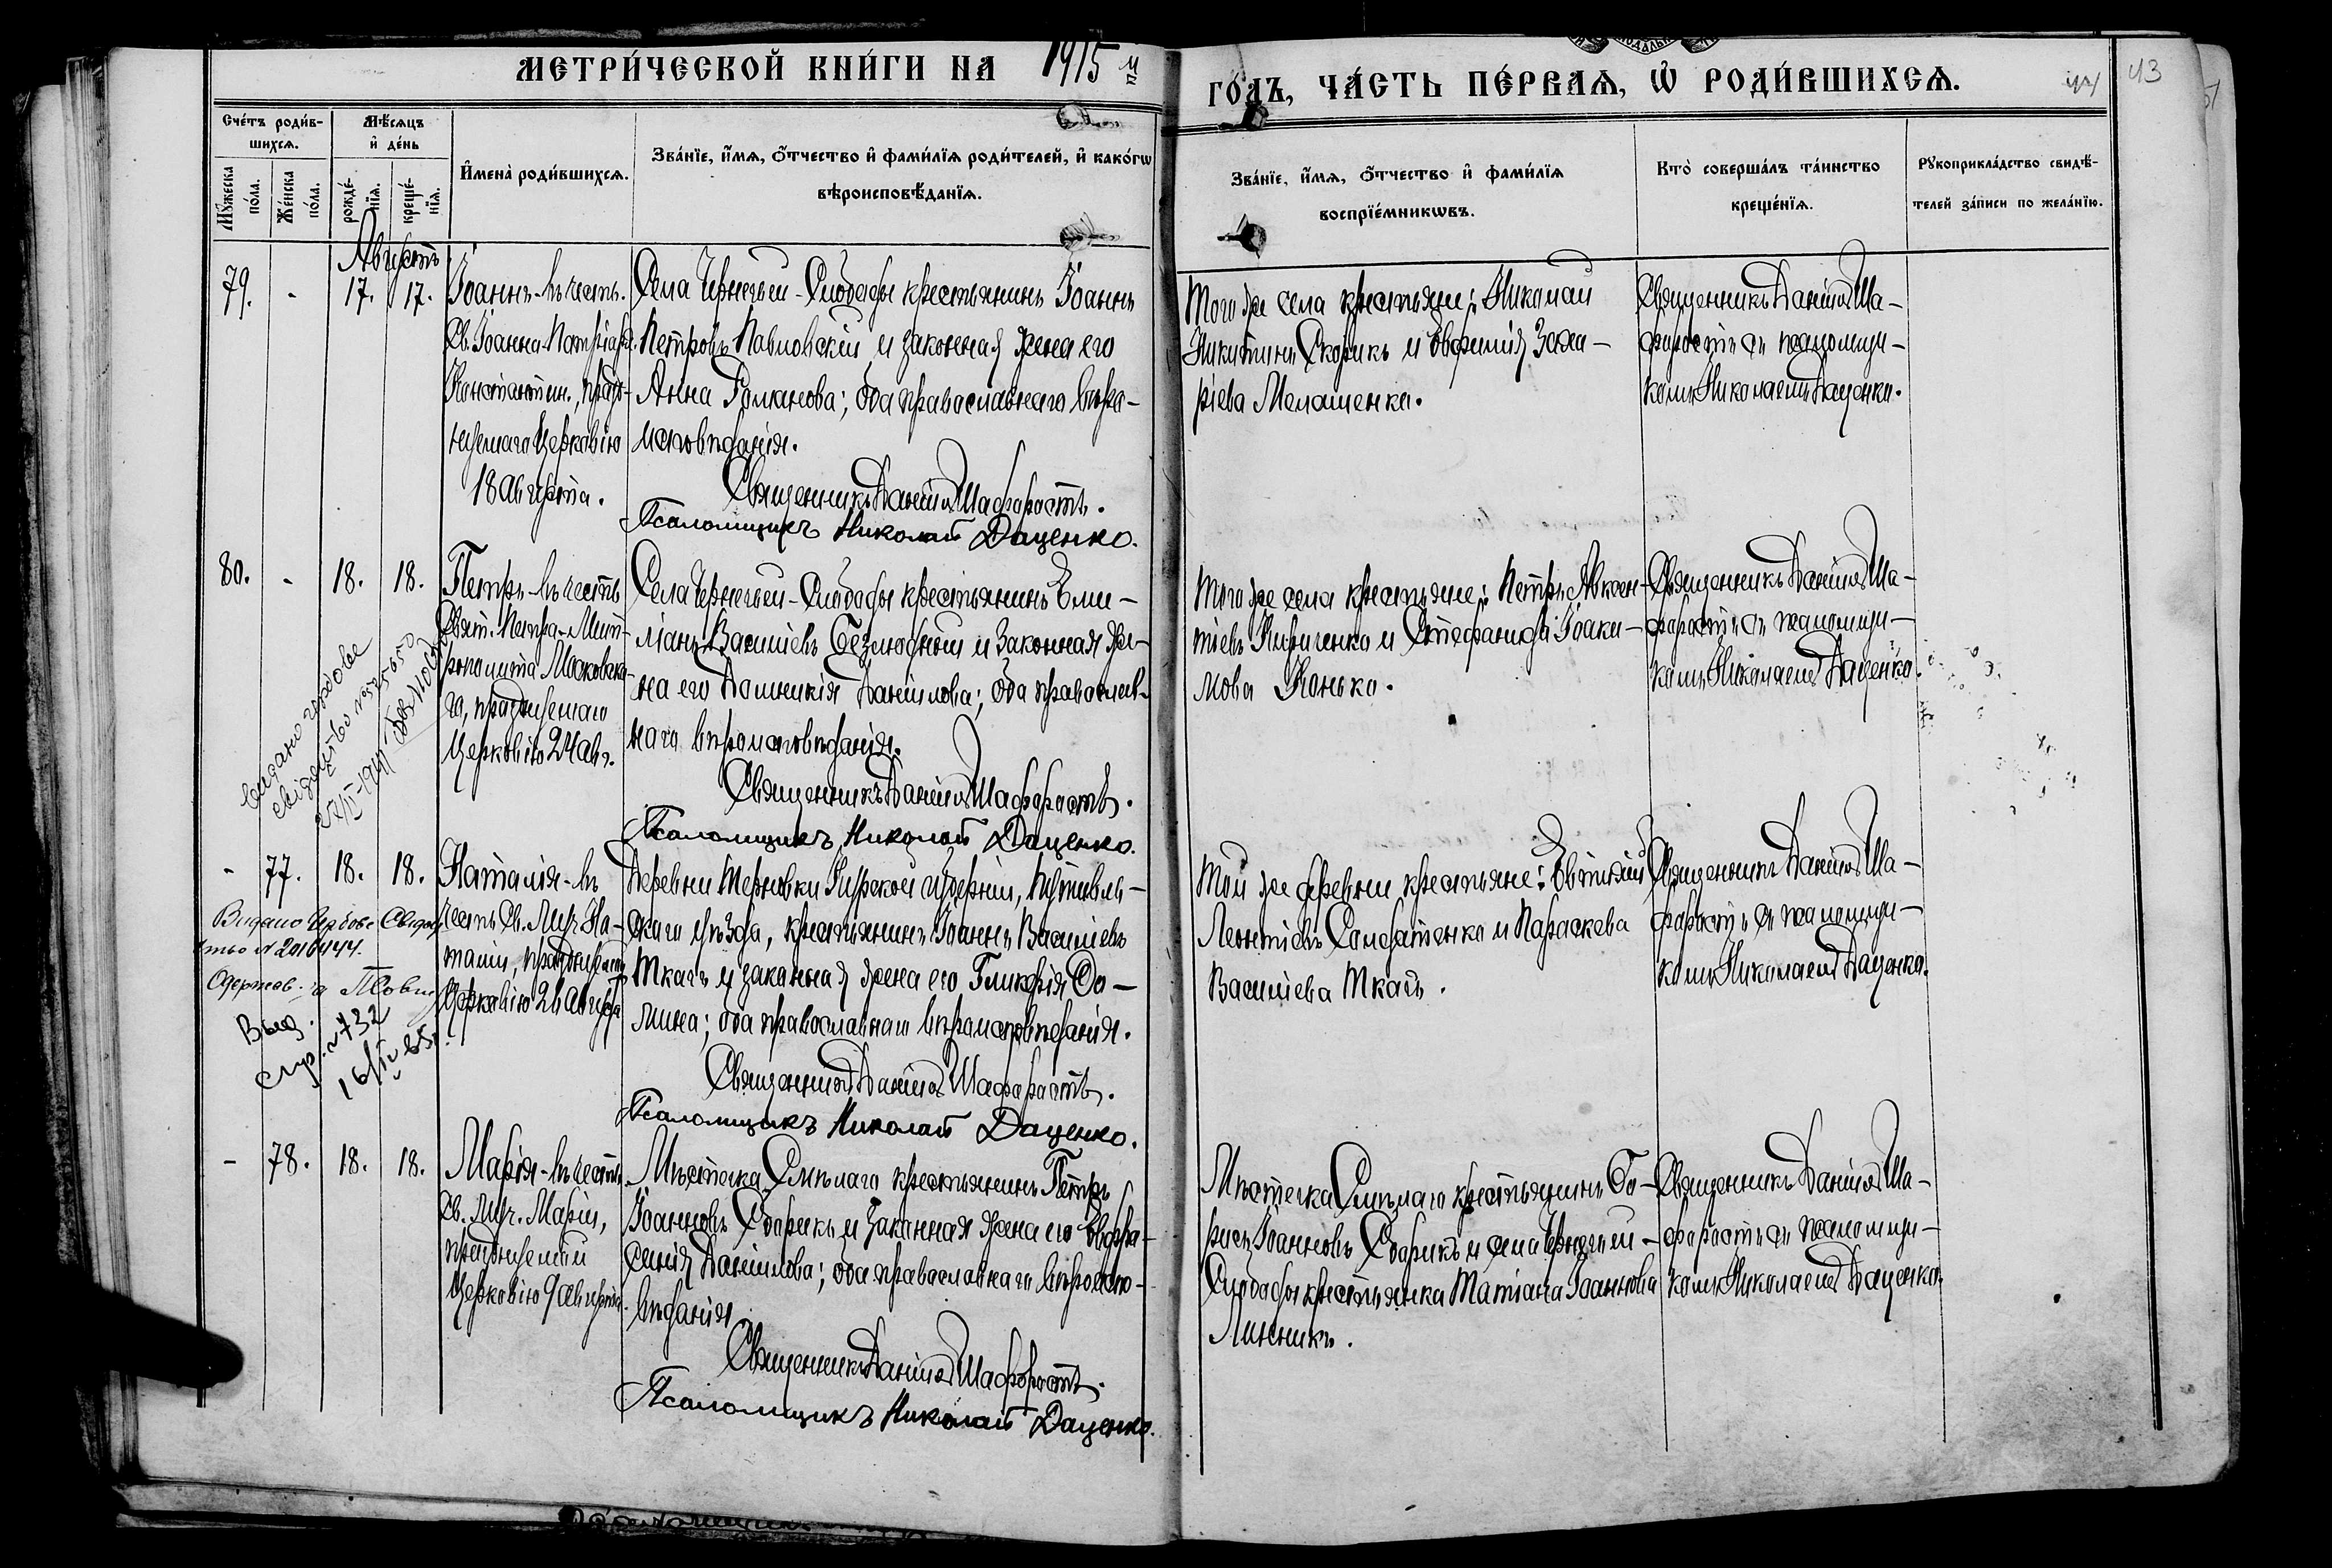 МЕТРИ́ЧЕСКОЙ КНИ́ГИ НА 1915 й
ГО́ДЪ, ЧА́СТЬ ПЕ́РВАѦ, Ѡ҆ РОДИ́ВШИХСѦ.
43
Сче́тъ роди́в-
шихсѧ.
Мꙋ́жеска
по́ла.
Же́нска
по́ла.
Мѣ́сѧцъ
и҆ де́нь
рожде́-
нїѧ.
креще́-
нїѧ.
И҆мена̀ роди́вшихсѧ.
Зва́нїе, и҆́мѧ, ѻ҆́тчество и҆ фами́лїѧ роди́телей, и҆ како́гѡ
вѣроисповѣ́данїѧ.
Зва́нїе, и҆́мѧ, ѻ҆́тчество и҆ фами́лїѧ
воспрїе́мникѡвъ.
Кто̀ соверша́лъ та́инство
креще́нїѧ.
Рꙋкоприкла́дство свидѣ́-
телей за́писи по жела́нїю.
Августъ
79.
-
17.
17.
Іоаннъ-въ честь
Св. Іоанна Патріарх.
Константин., празд-
нуемаго Церковію
18 августа.
Села Чернечьей-Слободы крестьянинъ Іоаннъ
Петровъ Павловскій и законная жена его
Анна Романова; оба православнаго вѣро-
исповѣданія.
Священникъ Даніилъ Шафоростъ.
Псаломщикъ Николай Даценко.
Того же села крестьяне: Николай
Никитинъ Скорикъ и Евфимія Заха-
ріева Мелашенко.
Священникъ Даніилъ Ша-
форостъ съ псаломщи-
комъ Николаемъ Даценко.
80.
-
18.
18.
Петръ-въ честь
Свят. Петра-Мит-
рополита Московска-
го, празднуемаго
Церковію 24 авг.
Села Чернечьей-Слободы крестьянинъ Еми-
ліанъ Василіевъ Безлюдный и законная же-
на его Домникія Даніилова; оба православ-
наго вѣроисповѣданія.
Священникъ Даніилъ Шафоростъ.
Псаломщикъ Николай Даценко.
Того же села крестьяне: Петръ Авксен-
тіевъ Кириченко и Стефанида Іоаки-
мова Конько.
Священникъ Даніилъ Ша-
форостъ съ псаломщи-
комъ Николаемъ Даценко.
видано чердове
свідоцтво №525650
-
77.
18.
18.
Наталія-въ
честь Св. Муч. На-
таліи, празднуемой
Церковію 26 августа
Деревни Терновки Курской губерніи, Путивль-
скаго уѣзда, крестьянинъ Іоаннъ Василіевъ
Ткачъ и законная жена его Гликерія Ѳо-
мина; оба православнаго вѣроисповѣданія.
Священникъ Даніилъ Шафоростъ.
Псаломщикъ Николай Даценко.
Той же деревни крестьяне: Евтихій
Леонтіевъ Самойленко и Параскева
Василіева Ткачъ.
Священникъ Даніилъ Ша-
форостъ съ псаломщи-
комъ Николаемъ Даценко.
Видано Чердове Свидоц
тво № 2010444.
Выд.
спр. №732
16/IV 65.
-
78.
18.
18.
Марія-въ честь
Св. Муч. Маріи,
празднуемой
Церковію 9 августа.
Мѣстечка Смѣлаго крестьянинъ Петръ
Іоанновъ Сборикъ и законная жена его Евфро-
синія Даніилова; оба православнаго вѣроиспо-
вѣданія.
Священникъ Даніилъ Шафоростъ.
Псаломщикъ Николай Даценко.
Мѣстечка Смѣлаго крестьянинъ Бо-
рисъ Іоанновъ Сборикъ и села Чернечьей-
Слободы крестьянка Татіана Іоаннова
Линникъ.
Священникъ Даніилъ Ша-
форостъ съ псаломщи-
комъ Николаемъ Даценко.